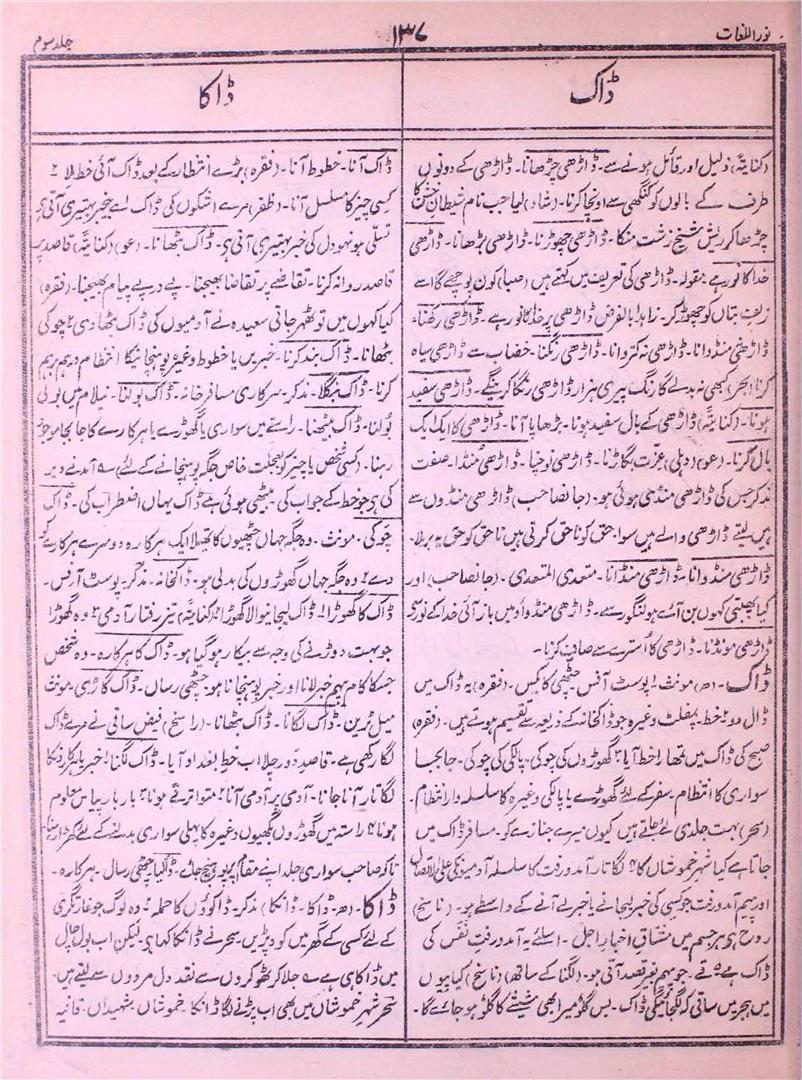 نور اللغات
۱۳۷
جلد سوم
ڈاک
ڈاکا
(کنایۃً) ذلیل اور قائل ہونے سے۔ ڈاڑھی چڑھانا۔ ڈاڑھی کے دونوں
طرف کے بالوں کو کنگھی سے اونچا کرنا۔ (شاد) لیا جب نام شیطان
چڑھا کر ریش شیخ زشت منکا۔ ڈاڑھی چھوڑنا۔ ڈاڑھی بڑھانا۔ ڈاڑھی
خدا کا نور ہے۔ مقولہ۔ ڈاڑھی کی تعریف میں کہتے ہیں (صبا) کون پوچھے گا اسے
زلف بتاں کو چھوڑ کر۔ زاہدا بالفرض ڈاڑھی پر خدا کا نور ہے۔ ڈاڑھی رکھنا۔
ڈاڑھی منڈوانا۔ ڈاڑھی نہ کتروانا۔ ڈاڑھی رنگنا۔ خضاب سے ڈاڑھی سیاہ
کرنا (بحر) کبھی نہ بدلے گا رنگ پیری ہزار ڈاڑھی رنگا کرینگے۔ ڈاڑھی سفید
ہونا۔ (کنایۃً) ڈاڑھی کے بال سفید ہونا۔ بڑھاپا آنا۔ ڈاڑھی کا ایک ایک
بال کرنا۔ (عو) (دہلی) عزت بگاڑنا۔ ڈاڑھی نوچنا۔ ڈاڑھی مُنڈا۔ صفت
مذکر جس کی ڈاڑھی منڈی ہوئی ہو۔ (جانصاحب) ڈاڑھی منڈوں سے
ہیں لیتے ڈاڑھی والے ہیں سوا۔ حق کو ناحق کرتی ہیں ناحق کو حق یہ برملا۔
ڈاڑھی منڈوانا۔ ڈاڑھی منڈانا۔ متعدی المتعدی۔ (جانصاحب) اور
کیا پھبتی کہوں بن آئے ہو لنگور سے۔ ڈاڑھی منڈواؤ میں باز آئی خدا کے نور سے
ڈاڑھی مونڈنا۔ ڈاڑھی کا اُسترے سے صاف کرنا۔
ڈاک۔ (ھ) مونث ۱ پوسٹ آفس چٹھی کا بکس۔ (فقرہ) یہ ڈاک میں
ڈال دو ۲ خط۔ پمفلٹ وغیرہ جو ڈاکخانہ کے ذریعہ سے تقسیم ہوتے ہیں۔ (فقرہ)
صبح کی ڈاک میں تمھارا خط آیا ۳ گھوڑوں کی چوکی۔ پالکی کی چوکی۔ جابجا
سواری کا انتظام سفر کے لئے گھوڑے یا پالکی وغیرہ کا سلسلہ وار انتظام۔
(سحر) بہت جلدی لئے جاتے ہیں کیوں میرے جنازے کو۔ مسافر ڈاک میں
جاتا ہے کیا شہر خموشاں کا ۴ لگاتار آمد و رفت کا سلسلہ آدمیوں کی علی الاتصال
اور پیہم آمد و رفت جو کسی کی خبر لیجانے یا خبر لے آنے کے واسطے ہو۔ (ناسخ)
روح ہی ہر جسم میں مشتاق اخبار اجل۔ اسلئے یہ آمد و رفت نفس کی
ڈاک ہے ۵ قے۔ جو پیہم بغیر قصد آتی ہو۔ (لگنا کے ساتھ) (ناسخ) کیا پیوں
میں ہجر میں ساقی کہ لگجائیگی ڈاک۔ بس گلو میرا بھی شیشے کا گلو ہو جائے گا۔
ڈاک آنا۔ خطوط آنا۔ (فقرہ) بڑے انتظار کے بعد ڈاک آئی خط ملا ۲
کسی چیز کا مسلسل آنا۔ (ظفر) مرے اشکوں کی ڈاک اے بیخبر بہتیری آتی ہی
تسلی ہو نہ دل کی خبر بہتیری آتی ہی۔ ڈاک بٹھانا۔ (عو) (کنایۃً) قاصد پر
قاصد روانہ کرنا۔ تقاضے پر تقاضا بھیجنا۔ پے در پے پیام بھیجنا۔ (فقرہ)
کیا کہوں میں تو ٹھہر جاتی سعیدہ نے آدمیوں کی ڈاک بٹھا دی ۲ چوکی
بٹھانا۔ ڈاک بند کرنا۔ خبریں یا خطوط وغیرہ پہنچانیکا انتظام درہم برہم
کرنا۔ ڈاک بنگلا۔ مذکر۔ سرکاری مسافر خانہ۔ ڈاک بولنا۔ نیلام میں بولی
بولنا۔ ڈاک بیٹھنا۔ راستے میں سواری یا گھوڑے یا ہرکارے کا جابجا موجود
رہنا۔ (کسی شخص یا چیز کو بعجلت خاص جگہ پہنچانے کے لئے) ؎ آمد نے دیر
کی ہی جو خط کے جواب کی۔ بیٹھی ہوئی ہے ڈاک یہاں اضطراب کی۔ ڈاک
چوکی۔ مونث۔ وہ جگہ جہاں چٹھیوں کا تھیلا ایک ہرکارہ دوسرے ہرکارے کو
دے ۲ وہ جگہ جہاں گھوڑوں کی بدلی ہو۔ ڈاکخانہ۔ مذکر۔ پوسٹ آفس۔
ڈاک کا گھوڑا ۱ ڈاک لیجانیوالا گھوڑا ۲ (کنایۃً) تیز رفتار آدمی ۳ وہ گھوڑا
جو بہت دوڑنے کی وجہ سے بیکار ہو گیا ہو۔ ڈاک کا ہرکارہ۔ وہ شخص
جسکا کام پیہم خبر لانا اور خبر پہنچانا ہو۔ چٹھی رساں۔ ڈاک گاڑی۔ مونث
میل ٹرین۔ ڈاک لگانا۔ ڈاک بٹھانا۔ (راسخ) فیض ساقی نے مرے ڈاک
لگا رکھی ہے۔ قاصد دور چلا اب خط بغداد آیا۔ ڈاک لگنا ۱ خبر یا ہرکارونکا
لگاتار آنا جانا۔ آدمی پر آدمی آنا ۲ متواتر قے ہونا ۳ بار بار پیاس معلوم
ہونا ۴ راستہ میں گھوڑوں بگھیوں وغیرہ کا پہلی سواری بدلنے کے لئے کھڑا رہنا
تا کہ صاحب سواری جلد اپنے مقام پر پہونچ جائے۔ ڈاکیا۔ چٹھی رساں۔ ہرکارہ۔
ڈاکا۔ (ھ۔ ڈاکا۔ ڈانکا) مذکر۔ ڈاکوؤں کا حملہ ۲ وہ لوگ جو غارتگری
کے لئے کسی کے گھر میں کود پڑیں۔ سحر نے ڈانکا کہا ہو۔ لیکن اب بول چال
میں ڈاکا ہی ہے ؎ چلا کر ٹھوکروں سے نقد دل مردوں سے لیتے ہیں۔
سحر شہر خموشاں میں بھی اب پڑنے لگا ڈانکا۔ خموشاں۔ شہیداں۔ قافیہ